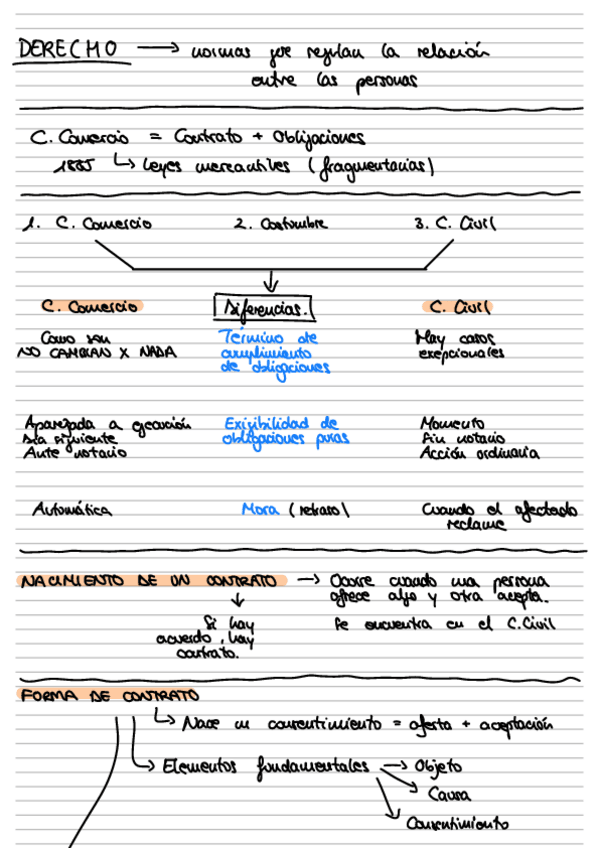 DERECHO → normas que regulan la relación
entre las personas
C. Comercio = Contrato + Obligaciones
1885 ↳ Leyes mercantiles (fragmentarias)
1. C. Comercio 2. Costumbre 3. C. Civil
C. Comercio Diferencias. C. Civil
Como son Término de Hay casos
NO CAMBIAN X NADA cumplimiento exepcionales
de obligaciones
Aparejada a ejecución Exigibilidad de Momento
Día siguiente obligaciones puras Sin notario
Ante notario Acción ordinaria
Automática Mora (retraso) Cuando el afectado
reclame
NACIMIENTO DE UN CONTRATO → Ocurre cuando una persona
ofrece algo y otra acepta.
Si hay Se encuentra en el C.Civil
acuerdo, hay
contrato.
FORMA DE CONTRATO
↳ Nace un consentimiento = oferta + aceptación
↳ Elementos fundamentales → Objeto
Causa
Consentimiento